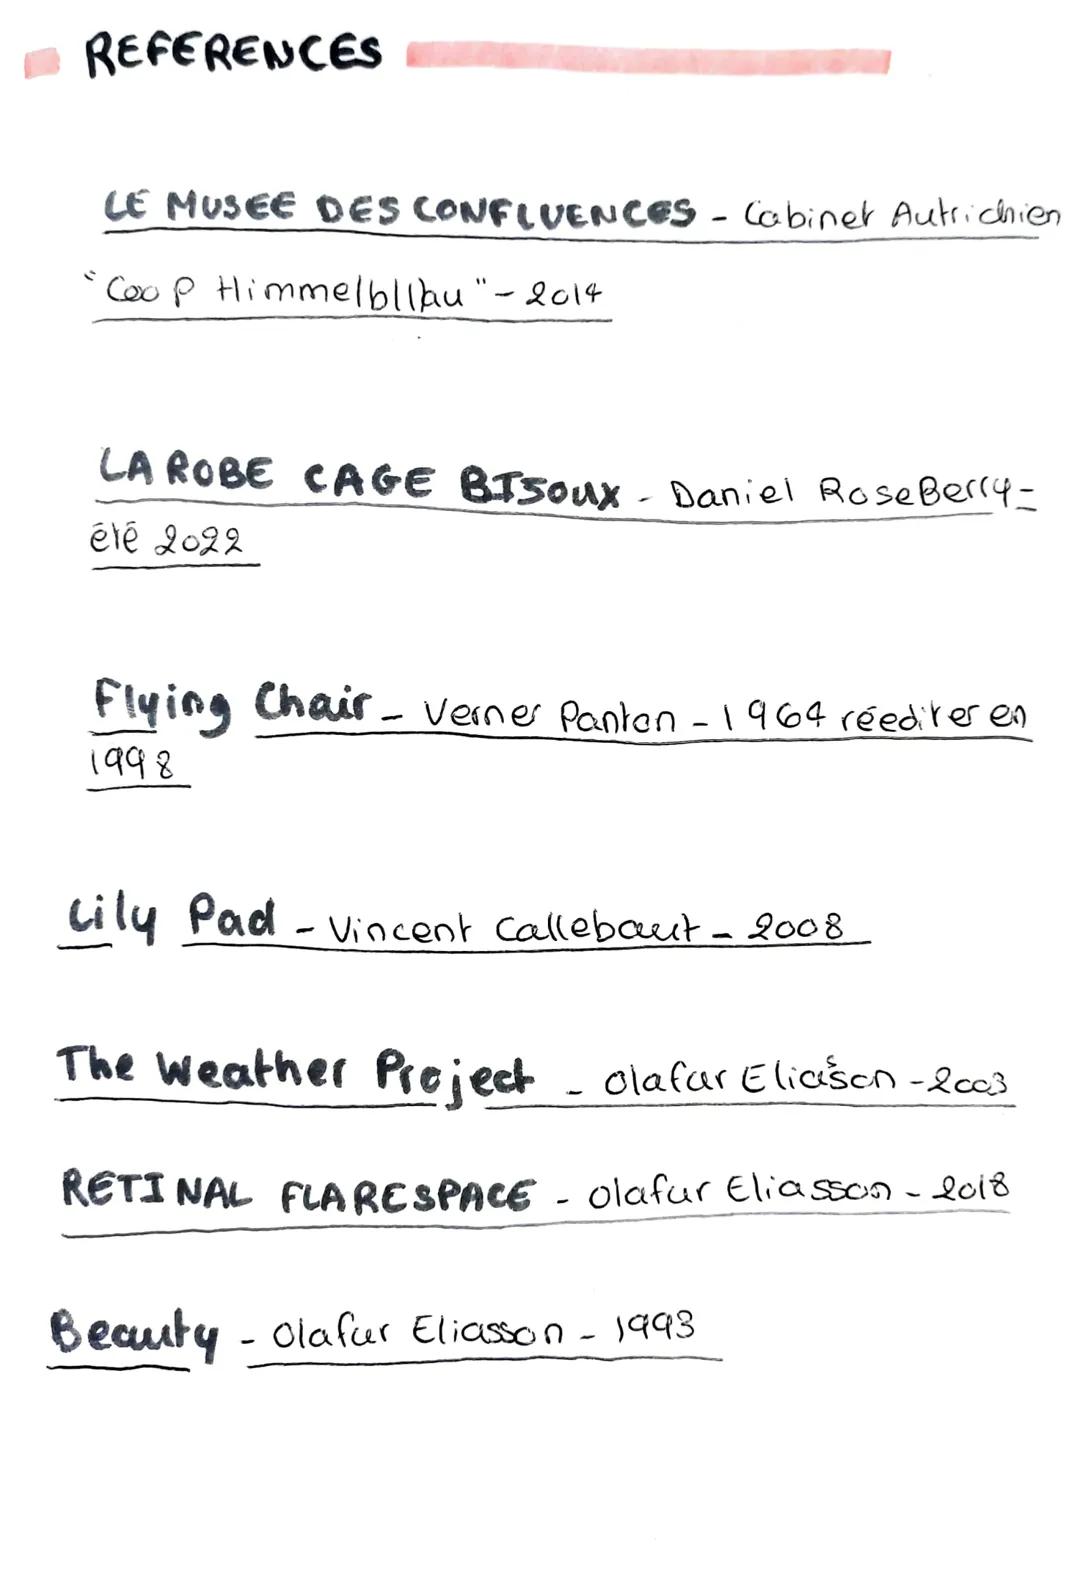 REFERENCES
LE MUSEE DES CONFLUENCES - Cabinet Autrichien
"Coop Himmelbllau" - 2014
LA ROBE CAGE BISOUX - Daniel RoseBerry -
été 2022
Flying Chair - Verner Panton - 1964 rééditer en
1998
Lily Pad - Vincent Callebaut - 2008
The Weather Project - Olafur Eliasson - 2003
RETINAL FLARESPACE - Olafur Eliasson - 2018
Beauty - Olafur Eliasson - 1993